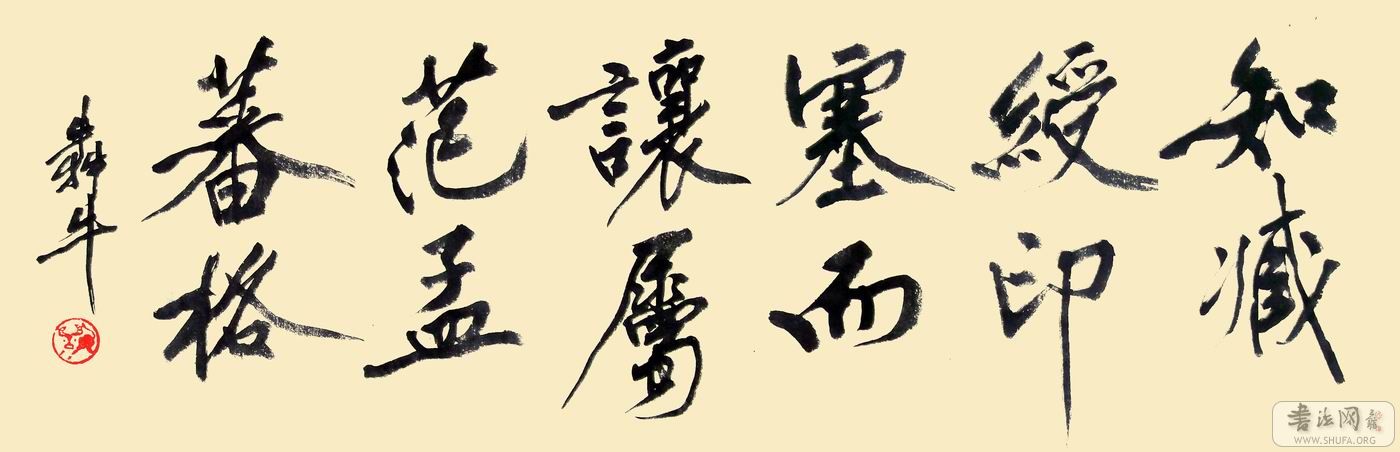 知减
綬印
塞而
讓屬
范孟
蕃格
犇牛
書法网
WWW.SHUFA.ORG